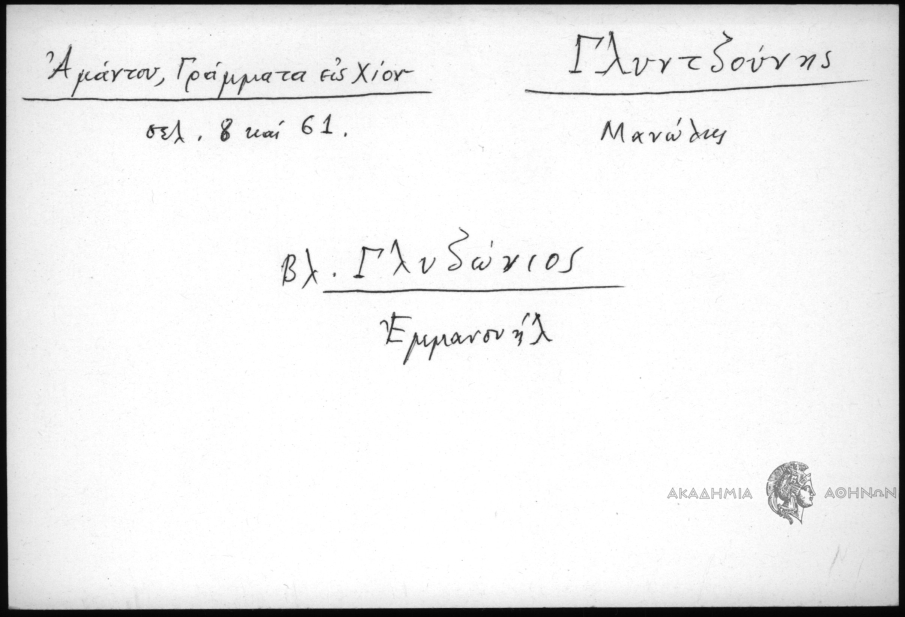 Ἀμάντου, Γράμματα εἰς Χίον
σελ. 8 καί 61.
Γλυντζούνης
Μανώλης
Βλ. Γλυζώνιος
Ἐμμανουήλ
ΑΚΑΔΗΜΙΑ ΑΘΗΝΩΝ